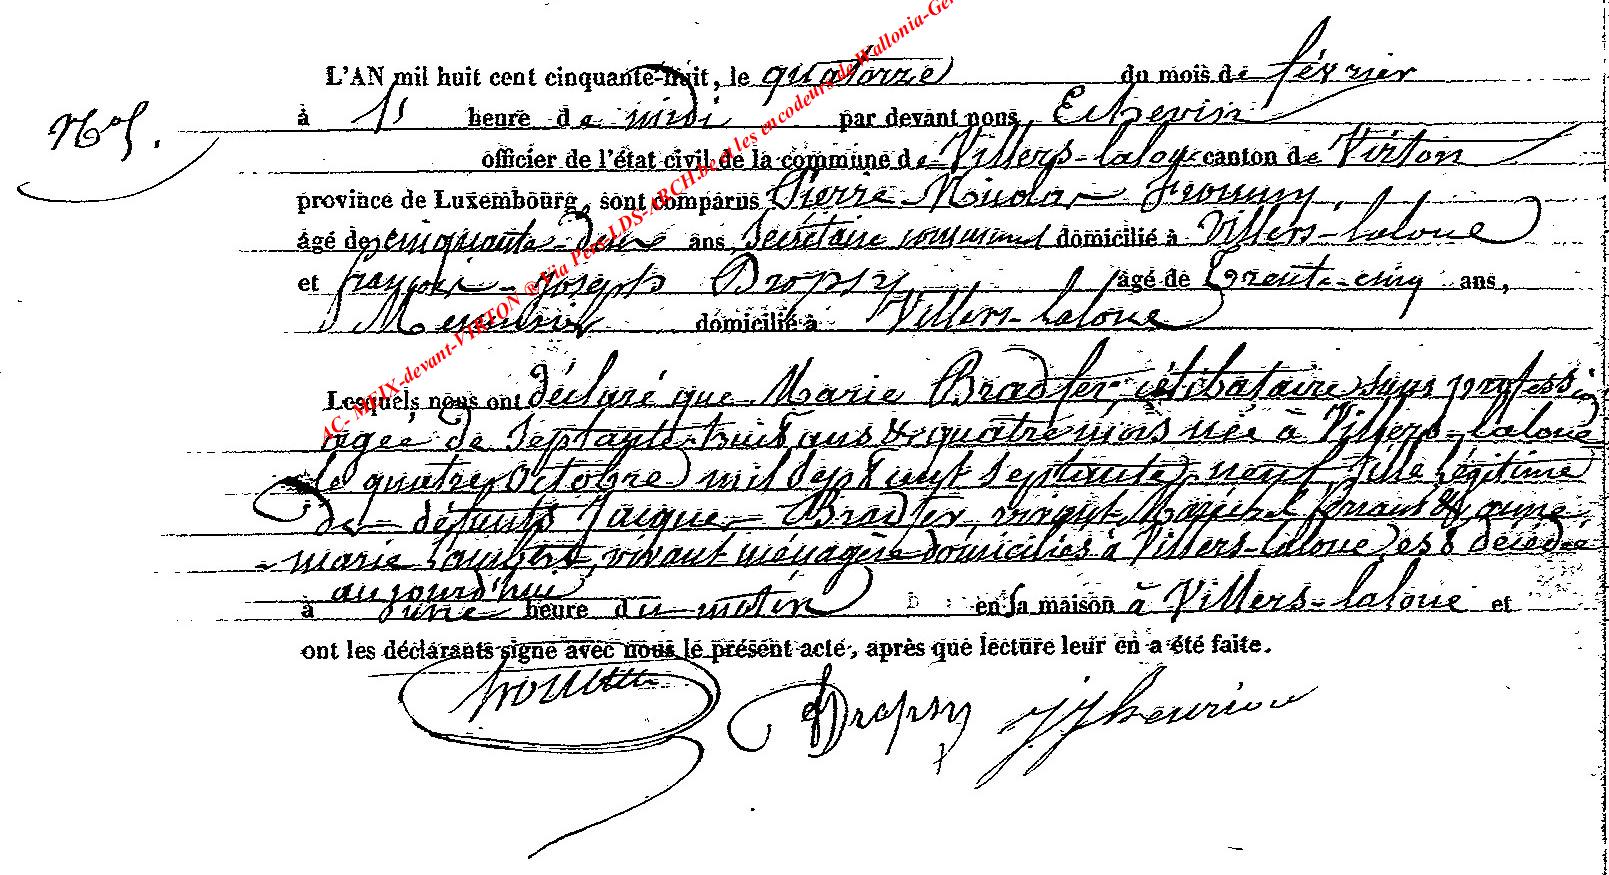 L'AN mil huit cent cinquante-huit, le quatorze du mois de février
N° 5.
à 11 heure de midi par devant nous Echevin
officier de l'état civil de la commune de Villers-laloue canton de Virton
province de Luxembourg, sont comparus Pierre Nicolas
âgé de cinquante-deux ans, Secrétaire communal domicilié à Villers-laloue
et françois-Joseph Dropsy âgé de trente-cinq ans,
Menuisier domicilié à Villers-laloue
Lesquels nous ont déclaré que Marie Bradfer, célibataire, sans profession
agée de septante-huit ans & quatre mois née à Villers-laloue
le quatre Octobre mil sept cent septante-neuf fille légitime
de défunts Jacques Bradfer, vivant Maréchal ferrant & anne
marie lambert, vivant ménagère domiciliés à Villers-laloue, est décédée
aujourd'hui
à une heure du matin en sa maison à Villers-laloue et
ont les déclarants signé avec nous le présent acte, après que lecture leur en a été faite.
Dropsy
AC- MEIX-devant-VIRTON ® Via Pere LDS-ARCH.be et les encodeurs de Wallonia-Gen